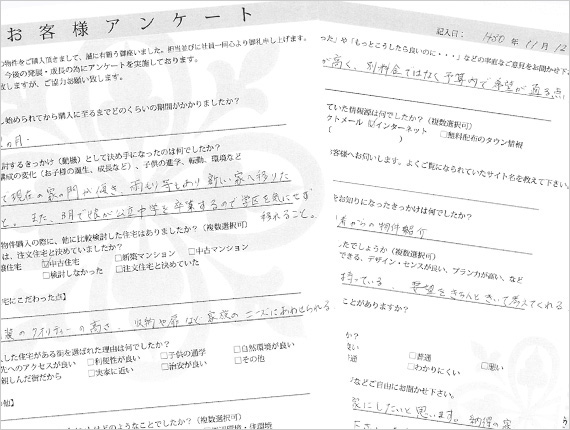 お客様アンケート
の物件をご購入頂きまして、誠に有難う御座いました。担当並びに社員一同心より御礼申し上げます。
今後の発展・成長の為にアンケートを実施しております。
致しますが、ご協力お願い致します。
し始められてから購入に至るまでどのくらいの期間がかかりましたか?
ヵ月.
討するきっかけ(動機)として決め手になったのは何でしたか?
構成の変化(お子様の誕生、成長など)、子供の進学、転勤、環境など
て現在の家の門が傾き、雨もり等もあり新しい家へ移りた
と。また、3月で娘が公立中学を卒業するので学区を気にせず
移れること。
物件購入の際に、他に比較検討した住宅はありましたか?(複数選択可)
は、注文住宅と決めていましたか?
☑中古住宅 □新築マンション □中古マンション
□検討しなかった □注文住宅と決めていた
宅にこだわった点】
装のクオリティーの高さ、収納や扉など家族のニーズにあわせられる
入した住宅がある街を選ばれた理由は何でしたか?
先へのアクセスが良い □利便性が良い □子供の通学 □自然環境が良い
親しんだ街だから □実家に近い □治安が良い □その他
他】
はどのようなことでしたか?(複数選択可)
記入日: 年 11月 12
った」や「もっとこうしたら良いのに・・・」などの率直なご意見をお聞かせ下
が高く、別料金ではなく予算内で希望が通る点
ていた情報源は何でしたか?(複数選択可)
クトメール ☑インターネット □無料配布のタウン情報
( )
お客様へお伺いします。よくご覧になられていたサイト名を教えて下さい。
をお知りになったきっかけは何でしたか?
者からの物件紹介
ったでしょうか(複数選択可)
できる、デザイン・センスが良い、プラン力が高い、など
持っている、要望をきちんときいて考えてくれる
ことがありますか?
か?
良い □普通 □悪い
□わかりにくい
などご自由にお聞かせ下さい。
家にしたいと思います。納得の家